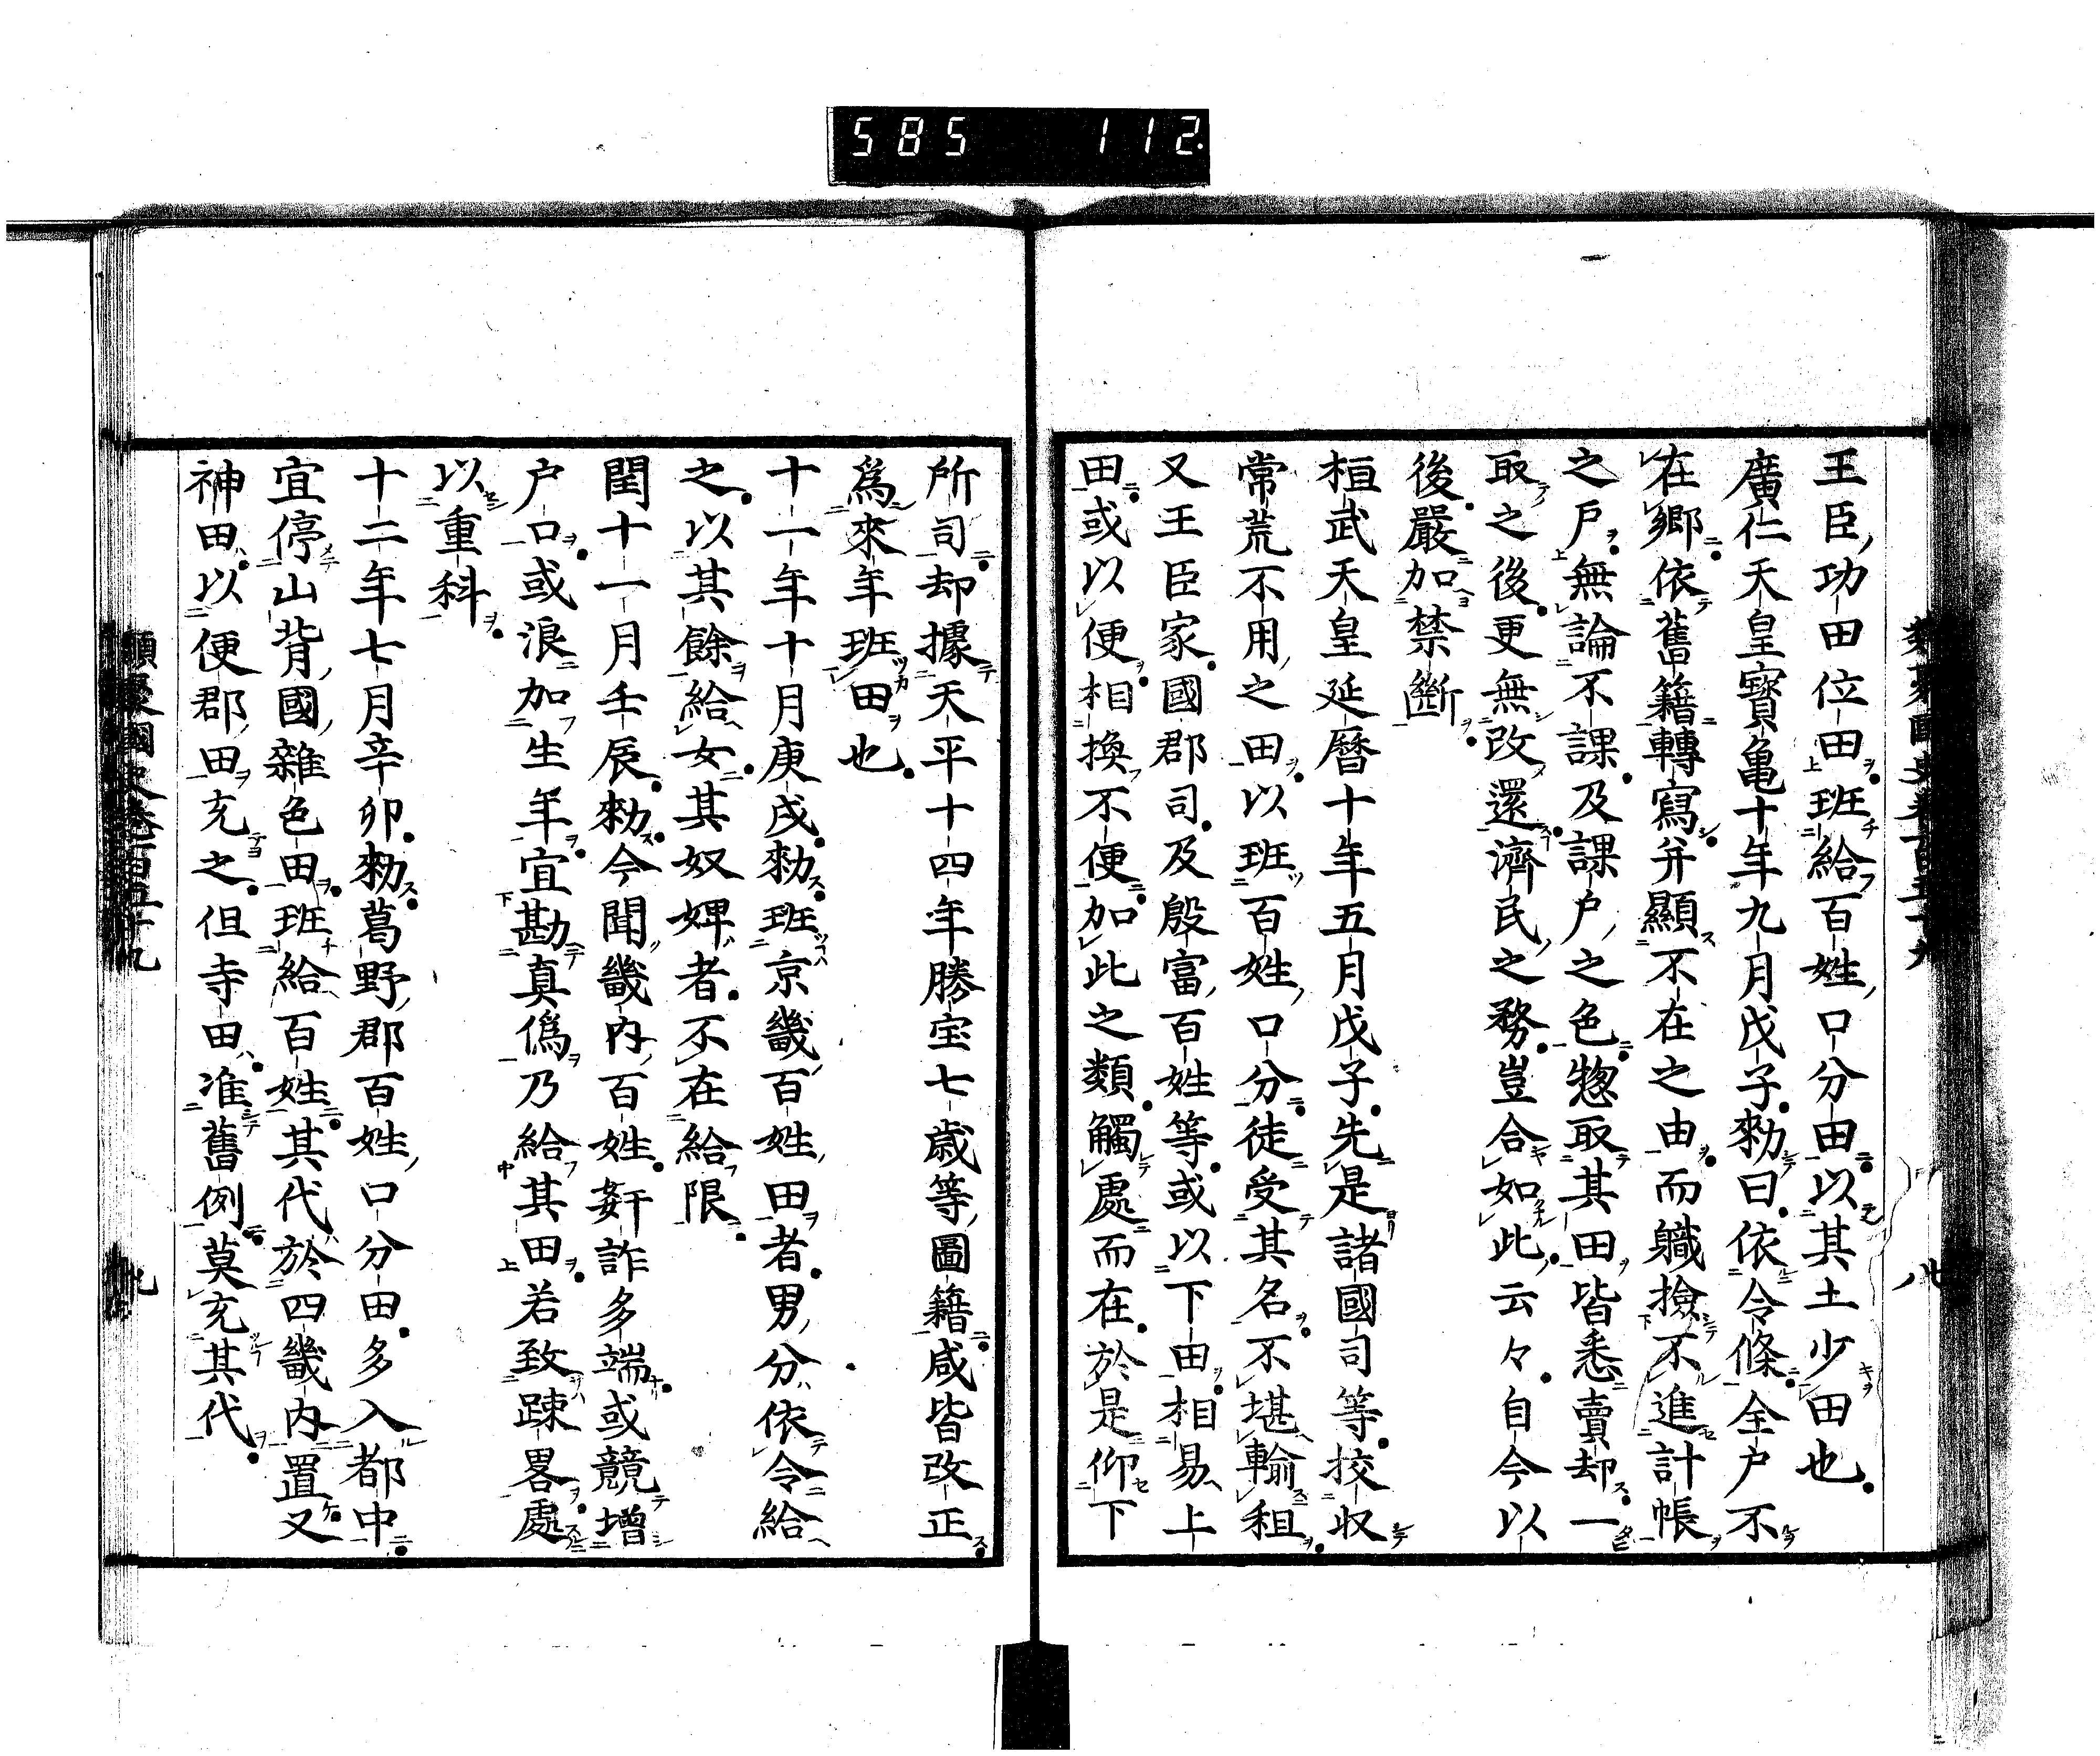 585 112.
王臣功田位田班給百姓口分田以其土少田也
廣仁天皇寳亀十年九月戊子勑曰依令條全户不
在郷依舊籍轉寫并顯不在之由而軄撿不進計帳
之戸無論不課及課户之色惣取其田皆悉賣却一
取之後更無改還濟民之務豈合如此云々自今以
後嚴加禁斷
桓武天皇延暦十年五月戊子先是諸國司等挍収
常荒不用之田以班百姓口分徒受其名不堪輸租
又王臣家國郡司及殷富百姓等或以下田相易上
田或以便相換不便加此之類觸處而在於是仰下
所司却據天平十四年勝宝七歳等圖籍咸皆改正
爲來年班田也
十一年十月庚戌勑班京畿百姓田者男分依令給
之以其餘給女其奴婢者不在給限
閏十一月壬辰勑今聞畿内百姓姧詐多端或競増
户口或浪加生年宜勘真僞乃給其田若致踈畧處
以重科
十二年七月辛卯勑葛野郡百姓口分田多入都中
宜停山背國雜色田班給百姓其代於四畿内置又
神田以便郡田充之但寺田准舊例莫充其代